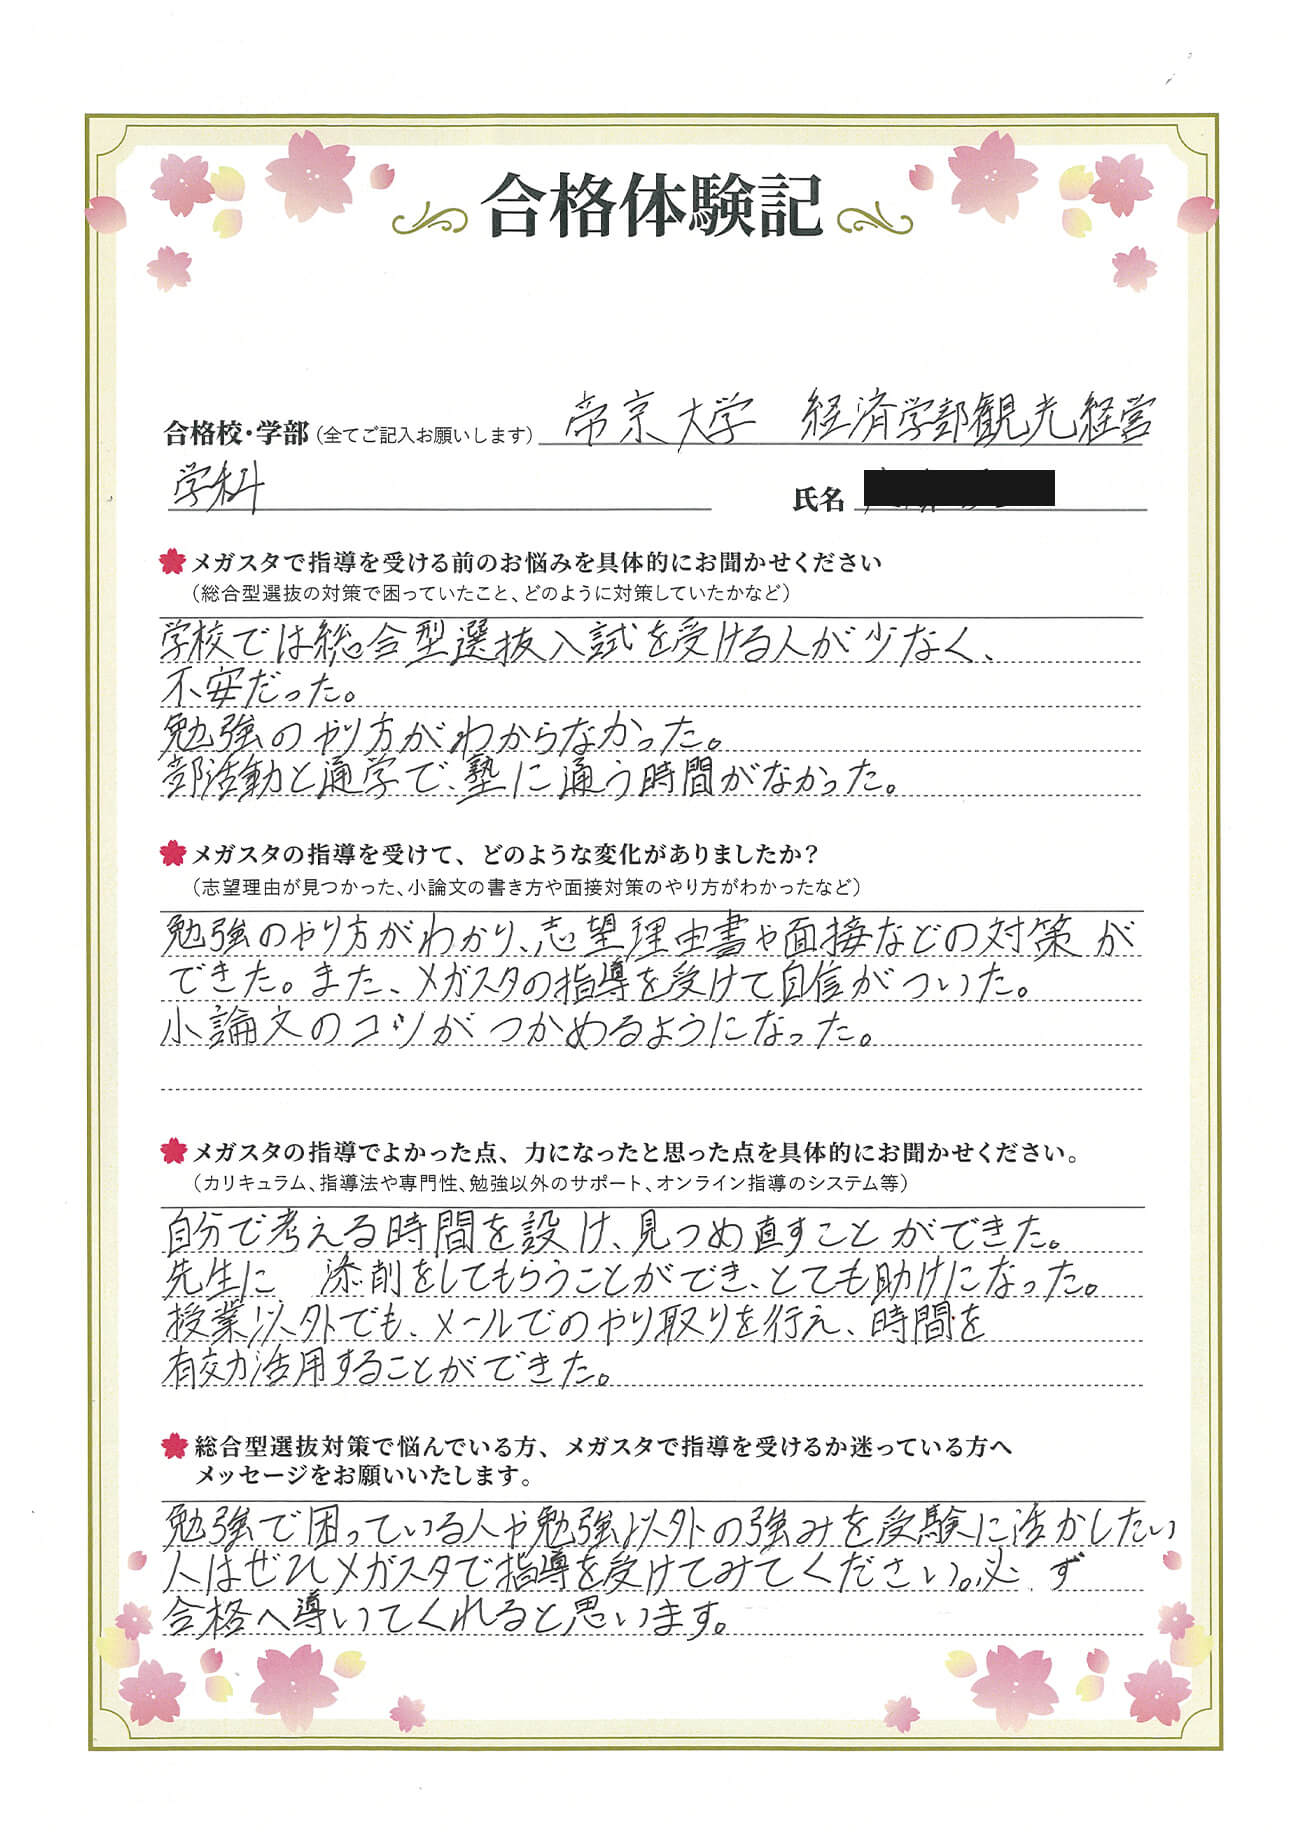 合格体験記
合格校・学部（全てご記入お願いします） 帝京大学 経済学部観光経営
学科
氏名
メガスタで指導を受ける前のお悩みを具体的にお聞かせください
（総合型選抜の対策で困っていたこと、どのように対策していたかなど）
学校では総合型選抜入試を受ける人が少なく、
不安だった。
勉強のやり方がわからなかった。
部活動と通学で、塾に通う時間がなかった。
メガスタの指導を受けて、どのような変化がありましたか？
（志望理由が見つかった、小論文の書き方や面接対策のやり方がわかったなど）
勉強のやり方がわかり、志望理由書や面接などの対策が
できた。また、メガスタの指導を受けて自信がついた。
小論文のコツがつかめるようになった。
メガスタの指導でよかった点、力になったと思った点を具体的にお聞かせください。
（カリキュラム、指導法や専門性、勉強以外のサポート、オンライン指導のシステム等）
自分で考える時間を設け、見つめ直すことができた。
先生に 添削をしてもらうことができ、とても助けになった。
授業以外でも、メールでのやり取りを行え、時間を
有効活用することができた。
総合型選抜対策で悩んでいる方、メガスタで指導を受けるか迷っている方へ
メッセージをお願いいたします。
勉強で困っている人や勉強以外の強みを受験に活かしたい
人はぜひメガスタで指導を受けてみてください。必ず
合格へ導いてくれると思います。